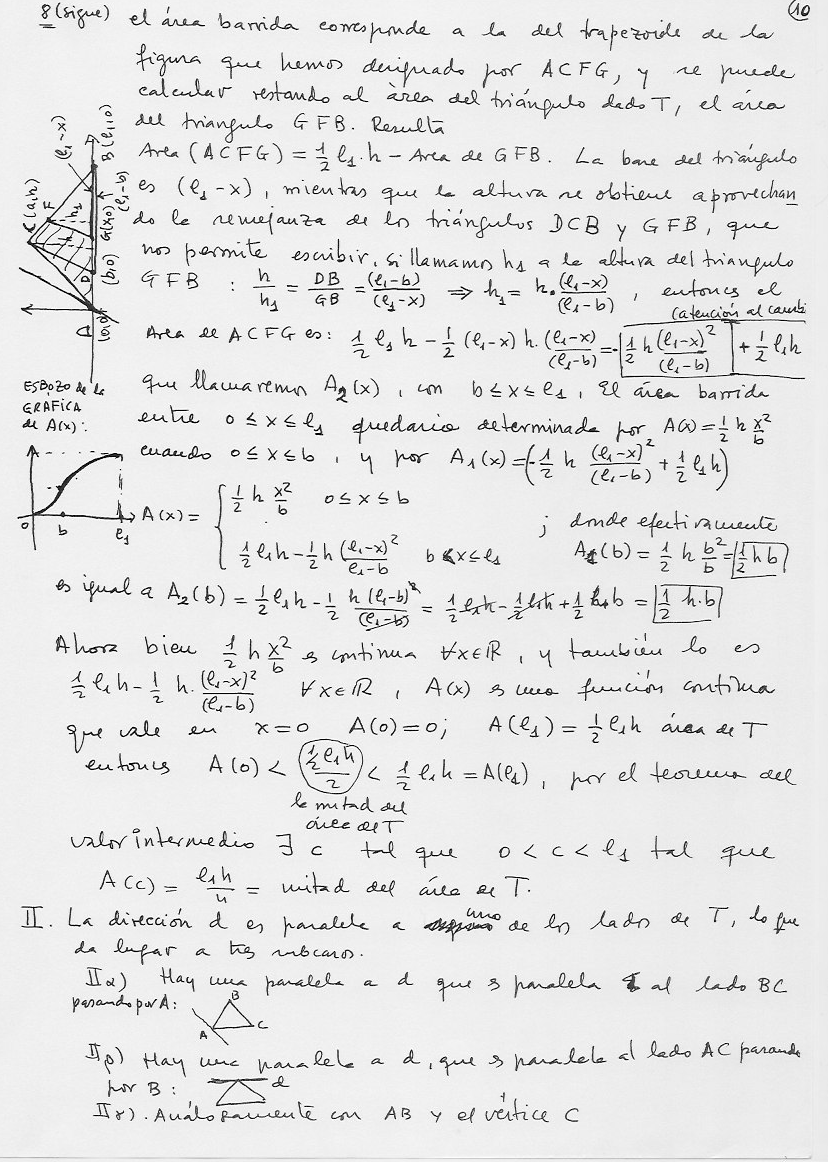 8 (sigue) el área barrida corresponde a la del trapezoide de la
10
figura que hemos designado por ACFG, y se puede
calcular restando al àrea del triángulo dado T, el área
del triangulo GFB. Resulta
Area (ACFG) = 1/2 l₁·h - Area de GFB. La base del triángulo
es (l₁-x), mientras que la altura se obtiene aprovechan
do la semejanza de los triángulos DCB y GFB, que
nos permite escribir, si llamamos h₁ a la altura del triangulo
GFB : h/h₁ = DB/GB = (l₁-b)/(l₁-x) ⇒ h₁ = h·(l₁-x)/(l₁-b), entonces el
(atención al cambi
Area de ACFG es: 1/2 l₁ h - 1/2 (l₁-x) h·(l₁-x)/(l₁-b) = -1/2 h (l₁-x)²/(l₁-b) + 1/2 l₁h
que llamaremos A₂(x), con b ≤ x ≤ l₁. El área barrida
entre 0 ≤ x ≤ l₁ quedaría determinada por A(x) = 1/2 h x²/b
cuando 0 ≤ x ≤ b, y por A₁(x) = (-1/2 h (l₁-x)²/(l₁-b) + 1/2 l₁h)
C(a,h)
F
h₁
h
(l₁-x)
B(l₁,0)
G(x,0)
(l₁-b)
D
(b,0)
A
(0,0)
ESBOZO de la
GRÁFICA
de A(x):
0
b
l₁
A(x) = { 1/2 h x²/b 0 ≤ x ≤ b
1/2 l₁h - 1/2 h (l₁-x)²/(l₁-b) b < x ≤ l₁
; donde efectivamente
A₁(b) = 1/2 h b²/b = 1/2 h b
es igual a A₂(b) = 1/2 l₁h - 1/2 h(l₁-b)²/(l₁-b) = 1/2 l₁h - 1/2 l₁h + 1/2 h·b = 1/2 h·b
Ahora bien 1/2 h x²/b es continua ∀x∈ℝ, y también lo es
1/2 l₁h - 1/2 h·(l₁-x)²/(l₁-b) ∀x∈ℝ, A(x) es una función continua
que vale en x=0 A(0)=0; A(l₁) = 1/2 l₁h área de T
entonces A(0) < (1/2 l₁h)/2 < 1/2 l₁h = A(l₁), por el teorema del
la mitad del
área de T
valor intermedio ∃ c tal que 0 < c < l₁ tal que
A(c) = l₁h/4 = mitad del área de T.
II. La dirección d es paralela a uno de los lados de T, lo que
da lugar a tres subcasos.
IIα) Hay una paralela a d que es paralela al lado BC
pasando por A:
B
A
C
IIβ) Hay una paralela a d, que es paralela al lado AC pasando
por B:
d
IIγ). Análogamente con AB y el vértice C